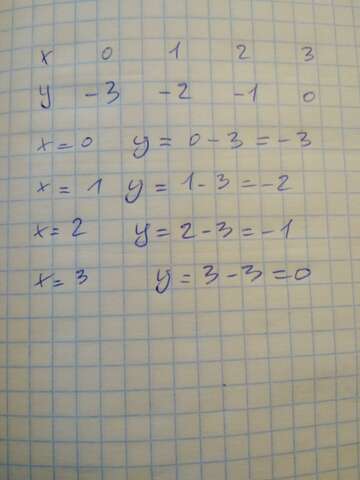 x 0 1 2 3
y -3 -2 -1 0
x = 0 y = 0 - 3 = -3
x = 1 y = 1 - 3 = -2
x = 2 y = 2 - 3 = -1
x = 3 y = 3 - 3 = 0